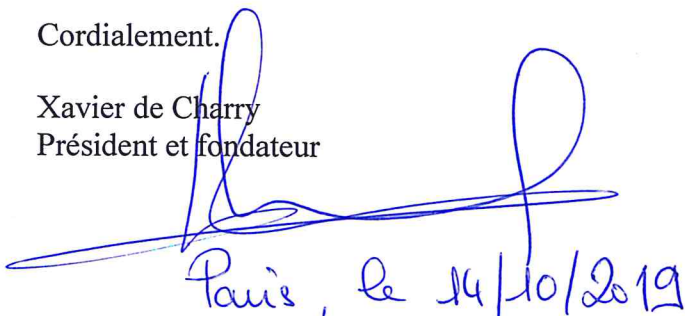 Cordialement.
Xavier de Charry
Président et fondateur
Paris, le 14/10/2019